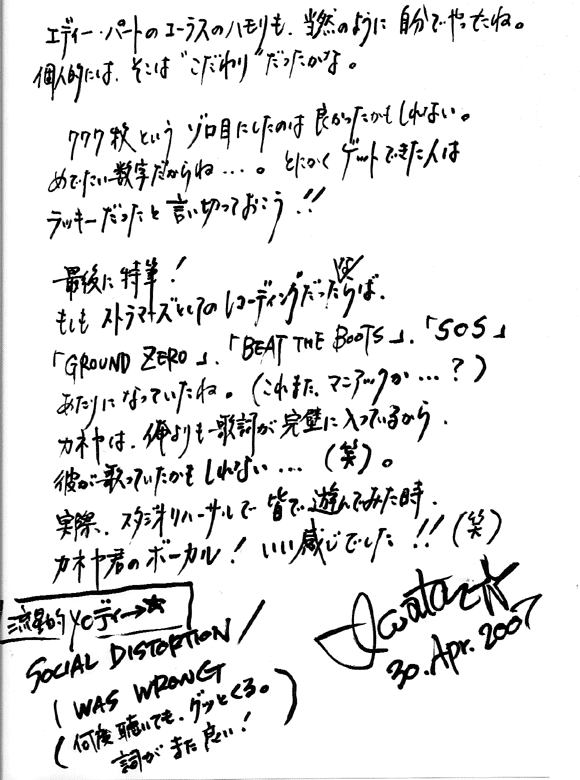 エディー・パートのコーラスのハモりも、当然のように自分でやったね。
個人的には、そこは"こだわり"だったかな。
777枚というゾロ目にしたのは良かったかもしれない。
めでたい数字だからね…。とにかくゲットできた人は
ラッキーだったと言い切っておこう!!
最後に特筆!
もしもストラマーズとしてのレコーディングだったならば、
「GROUND ZERO」、「BEAT THE BOOTS」、「SOS」
あたりになっていたね。(これまた、マニアックか…?)
カネヤは、俺よりも歌詞が完璧に入っているから、
彼が歌っていたかもしれない…(笑)。
実際、スタジオリハーサルで皆で遊んでみた時、
カネヤ君のボーカル!いい感じでした!!(笑)
流星的メロディー→☆
SOCIAL DISTORTION/
I WAS WRONG
(何度聴いても、グッとくる。
詞がまた良い!)
30.Apr.2007